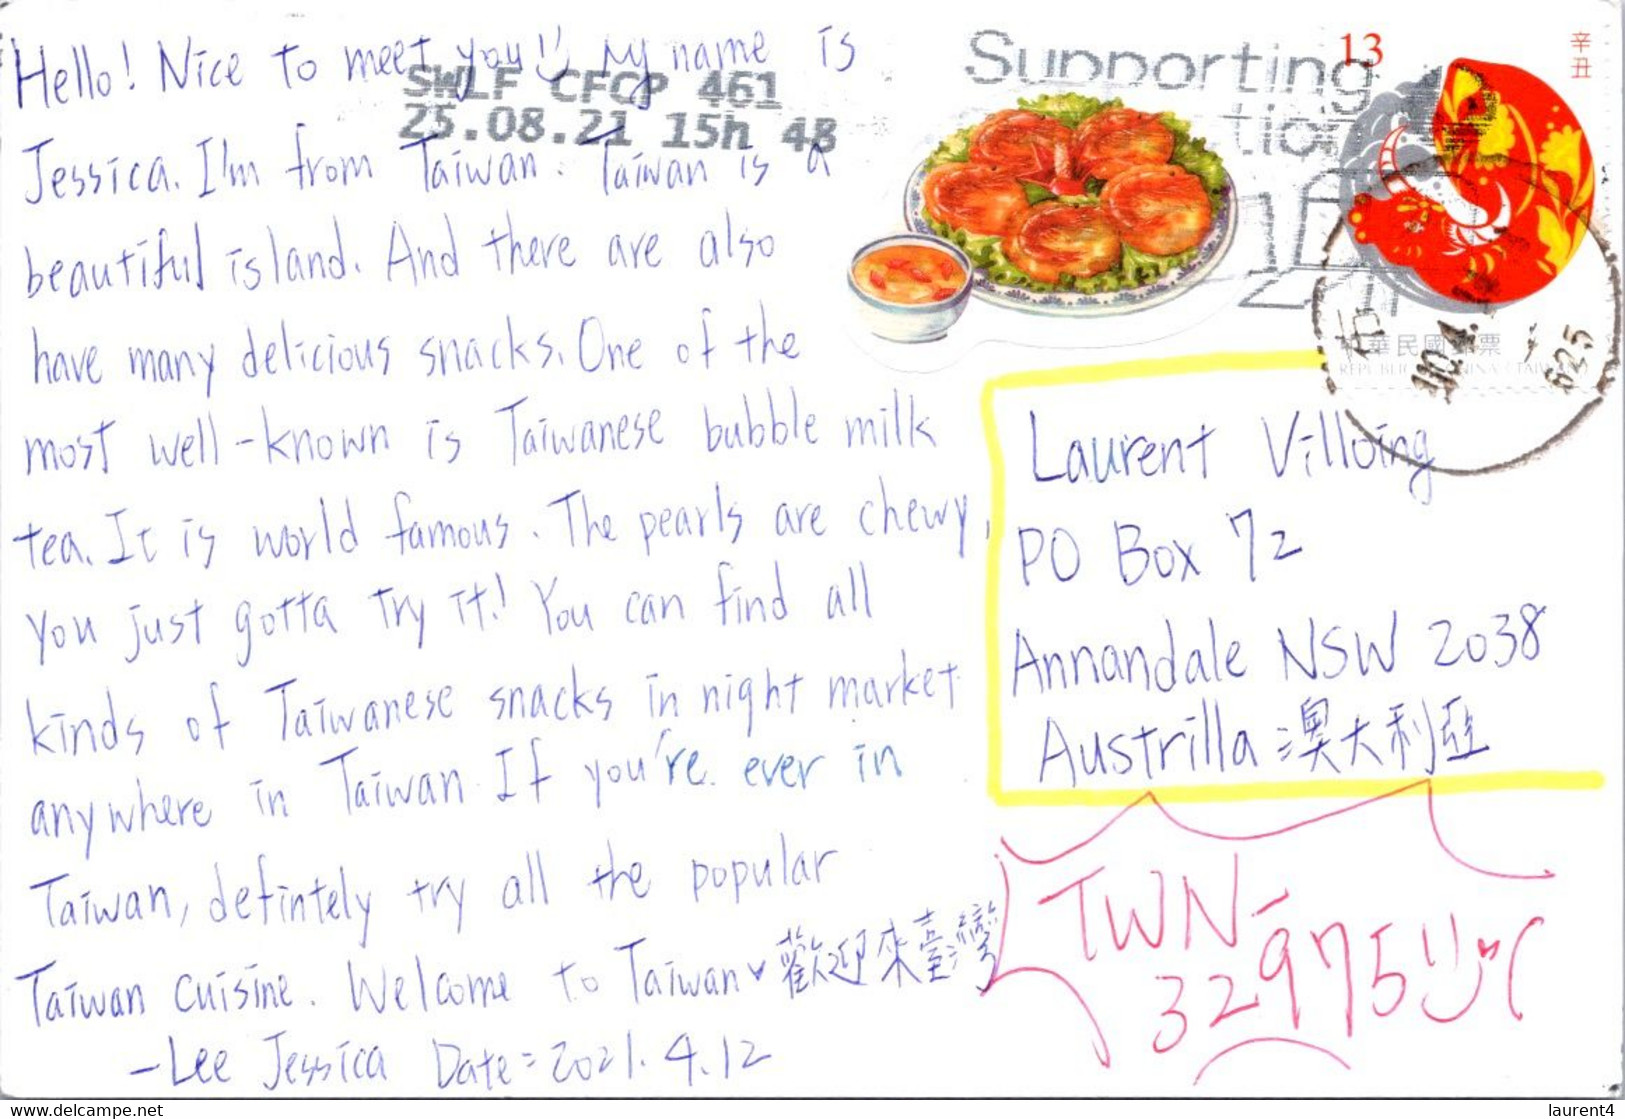 Hello! Nice to meet you!! My name is
Jessica. I'm from Taiwan. Taiwan is a
beautiful island. And there are also
have many delicious snacks. One of the
most well-known is Taiwanese bubble milk
tea. It is world famous. The pearls are chewy,
You just gotta try it! You can find all
kinds of Taiwanese snacks in night market
anywhere in Taiwan. If you're ever in
Taiwan, defintely try all the popular
Taiwan cuisine. Welcome to Taiwan♥歡迎來臺灣
-Lee Jessica Date=2021.4.12
SWLF CFCP 461
25.08.21 15h 48
Supporting
13
辛丑
華民國票
625
Laurent Villoing
PO Box 72
Annandale NSW 2038
Austrilla 澳大利亞
TWN-
32975
www.delcampe.net
laurent4